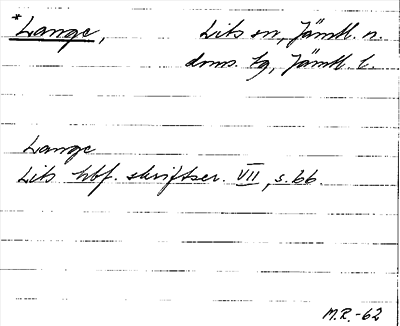 *Lange, Lits sn, Jämtl. n.
doms. tg, Jämtl. l.
Lange
Lits hbf. skriftser. VII, s. 66
M.R.-62